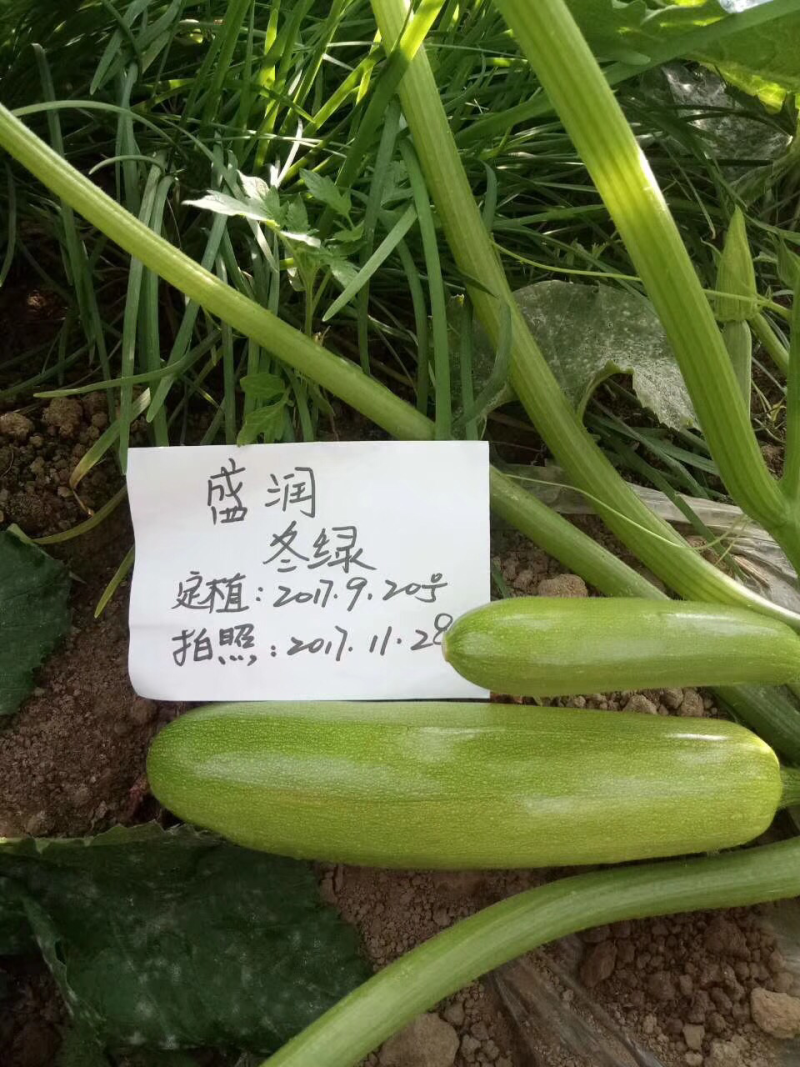 盛润
冬绿
定植:2017.9.20号
拍照:2017.11.28